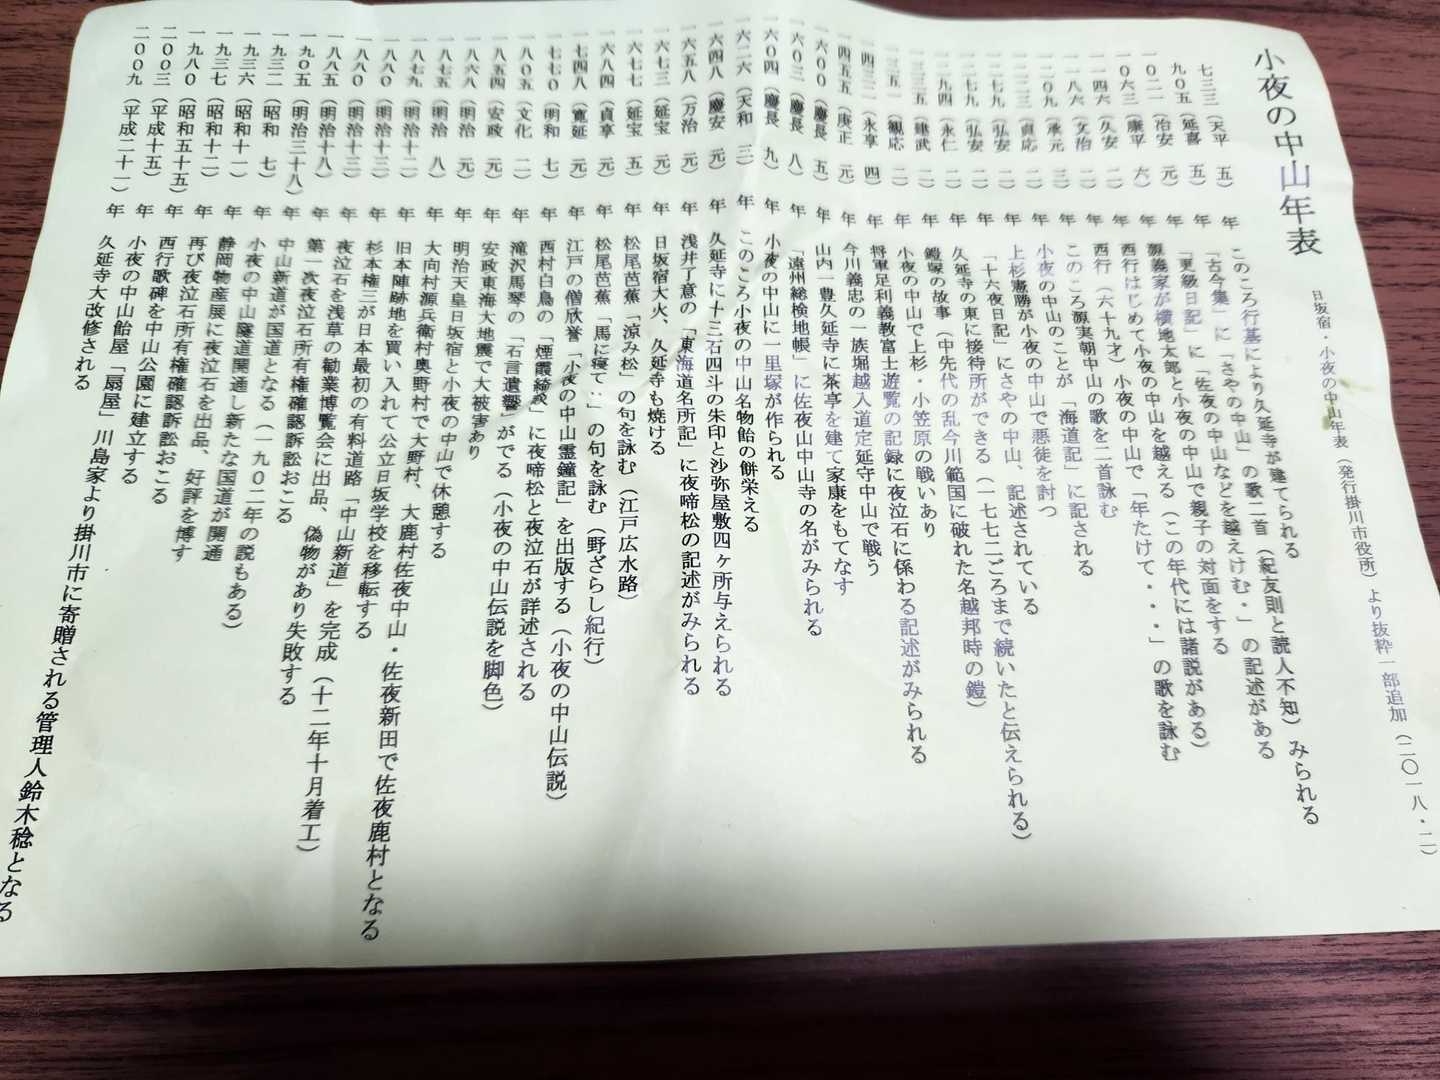 小夜の中山年表
日坂宿・小夜の中山年表(発行掛川市役所)より抜粋一部追加(二〇一八・二)
七三三(天平 五)年 このころ行基により久延寺が建てられる
九〇五(延喜 五)年 「古今集」に「さやの中山」の歌二首(紀友則と読人不知)みられる
一〇二一(治安 元)年 「更級日記」に「佐夜の中山などを越えけむ・」の記述がある
一〇六三(康平 六)年 源義家が横地太郎と小夜の中山で親子の対面をする
一一四六(久安 二)年 西行はじめて小夜の中山を越える(この年代には諸説がある)
一一八六(文治 二)年 西行(六十九才)小夜の中山で「年たけて・・・」の歌を詠む
一二〇九(承元 三)年 このころ源実朝中山の歌を二首詠む
一二二三(貞応 二)年 小夜の中山のことが「海道記」に記される
一二七九(弘安 二)年 上杉憲勝が小夜の中山で悪徒を討つ
一二七九(弘安 二)年 「十六夜日記」にさやの中山、記述されている
一二九四(永仁 二)年 久延寺の東に接待所ができる(一七七二ごろまで続いたと伝えられる)
一三三五(建武 二)年 鎧塚の故事(中先代の乱今川範国に破れた名越邦時の鎧)
一三五一(観応 二)年 小夜の中山で上杉・小笠原の戦いあり
一四三二(永享 四)年 将軍足利義教富士遊覧の記録に夜泣石に係わる記述がみられる
一四五五(康正 元)年 今川義忠の一族堀越入道定延守中山で戦う
一六〇〇(慶長 五)年 山内一豊久延寺に茶亭を建て家康をもてなす
一六〇三(慶長 八)年 「遠州総検地帳」に佐夜山中山寺の名がみられる
一六〇四(慶長 九)年 小夜の中山に一里塚が作られる
一六二六(天和 三)年 このころ小夜の中山名物飴の餅栄える
一六四八(慶安 元)年 久延寺に十三石四斗の朱印と沙弥屋敷四ヶ所与えられる
一六五八(万治 元)年 浅井了意の「東海道名所記」に夜啼松の記述がみられる
一六七三(延宝 元)年 日坂宿大火、久延寺も焼ける
一六七七(延宝 五)年 松尾芭蕉「涼み松」の句を詠む(江戸広水路)
一六八四(貞享 元)年 松尾芭蕉「馬に寝て‥」の句を詠む(野ざらし紀行)
一七四八(寛延 元)年 江戸の僧欣誉「小夜の中山霊鐘記」を出版する(小夜の中山伝説)
一七七〇(明和 七)年 西村白鳥の「煙霞綺談」に夜啼松と夜泣石が詳述される
一八〇五(文化 二)年 滝沢馬琴の「石言遺響」がでる(小夜の中山伝説を脚色)
一八五四(安政 元)年 安政東海大地震で大被害あり
一八六八(明治 元)年 明治天皇日坂宿と小夜の中山で休憩する
一八七五(明治 八)年 大向村源兵衛村奥野村で大野村、大鹿村佐夜中山・佐夜新田で佐夜鹿村となる
一八七九(明治十二)年 旧本陣跡地を買い入れて公立日坂学校を移転する
一八八〇(明治十三)年 杉本権三が日本最初の有料道路「中山新道」を完成(十二年十月着工)
一八八〇(明治十三)年 夜泣石を浅草の勧業博覧会に出品、偽物があり失敗する
一八八五(明治十八)年 第一次夜泣石所有権確認訴訟おこる
一九〇五(明治三十八)年 中山新道が国道となる(一九〇二年の説もある)
一九三二(昭和 七)年 小夜の中山隧道開通し新たな国道が開通
一九三六(昭和十一)年 静岡物産展に夜泣石を出品、好評を博す
一九三七(昭和十二)年 再び夜泣石所有権確認訴訟おこる
一九八〇(昭和五十五)年 西行歌碑を中山公園に建立する
二〇〇三(平成十五)年 小夜の中山飴屋「扇屋」川島家より掛川市に寄贈される管理人鈴木稔となる
二〇〇九(平成二十一)年 久延寺大改修される